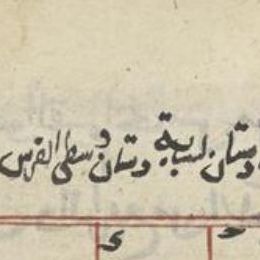 دستان لسبابة دستان وسطى الفرس